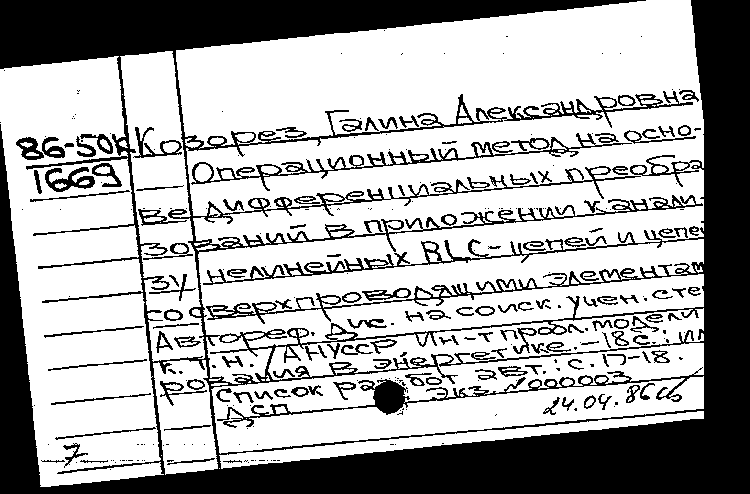 86-50к
1669
Козорез, Галина Александровна
Операционный метод на осно-
ве дифференциальных преобра
зований в приложении к анали-
зу нелинейных RLC-цепей и цепей
со сверхпроводящими элементам
Автореф. дис. на соиск. учен. сте
к.т.н. / АН УССР Ин-т пробл. модели
рования в энергетике. – 18 с.: ил
Список работ авт.: с. 17-18.
ДСП Экз. №000003
24.04.86
7